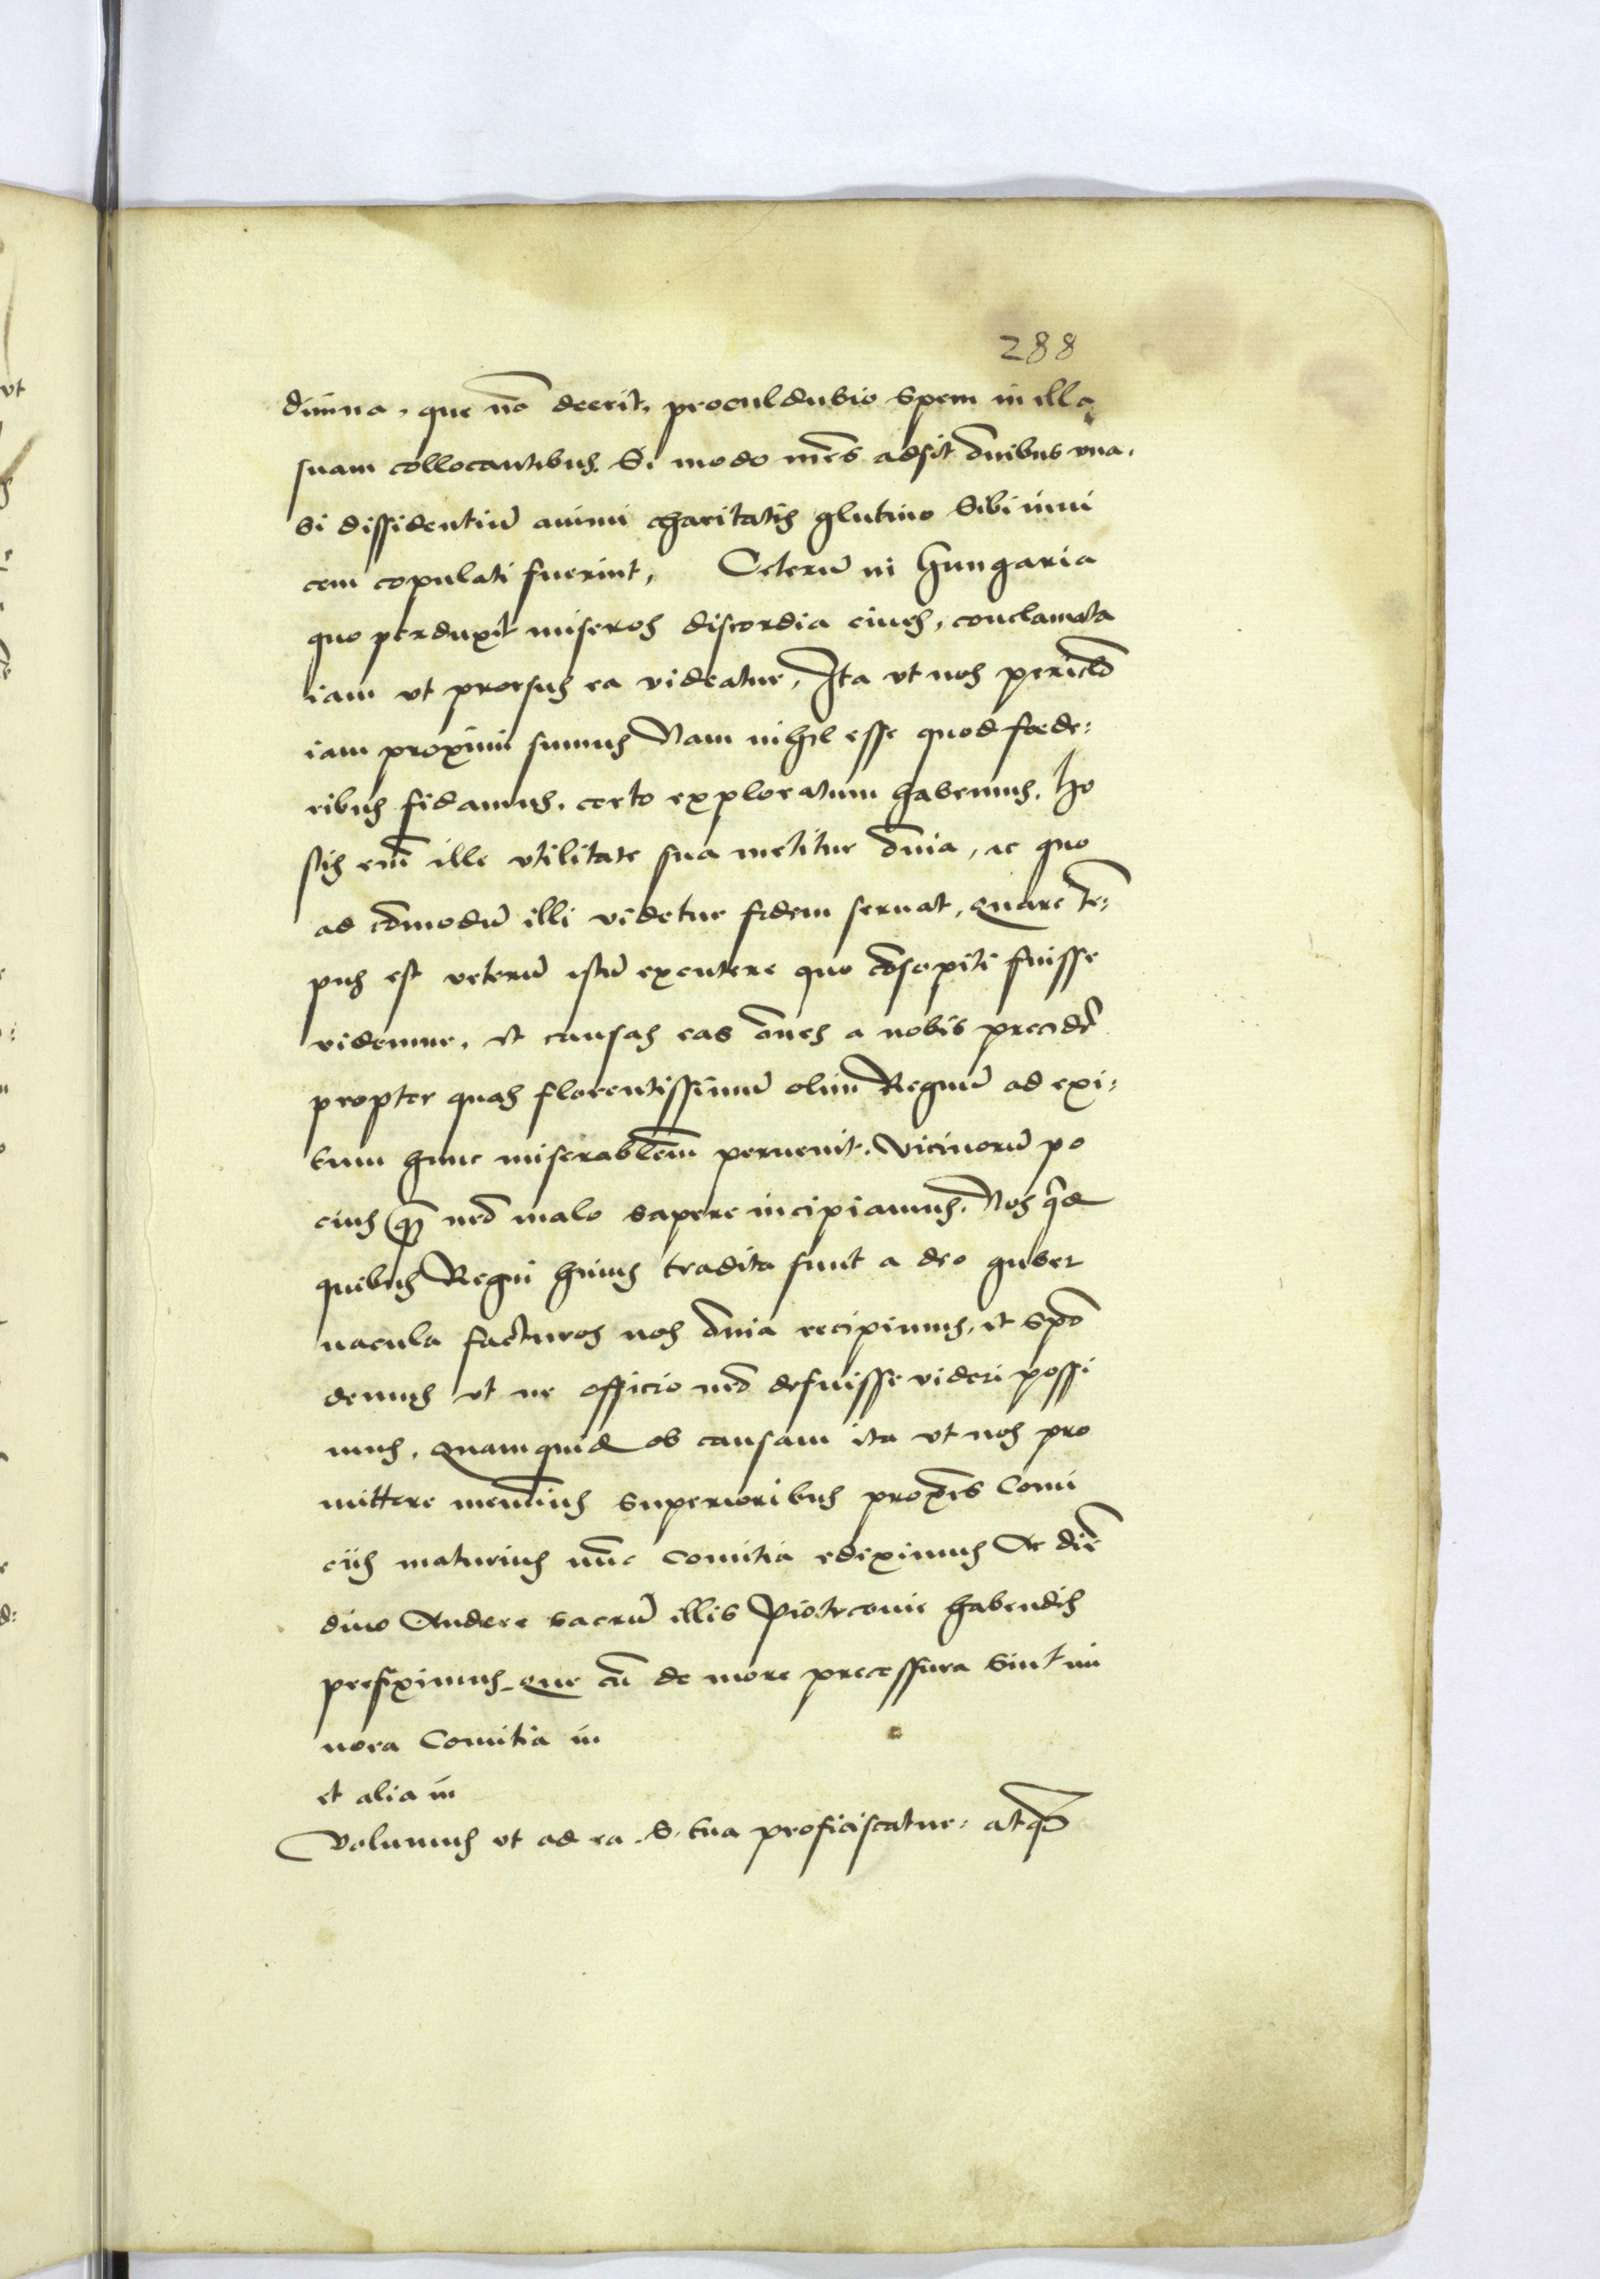 288
diuina, que nō deerit, proculdubio spem in illa
suam collocantibus. Si modo mēs adsit ōnibus vna,
si dissidentiū animi charitatis glutino sibi inui
cem copulati fuerint, Ceterū in Hungaria
quo perduxit miseros discordia ciues, conclamata
iam vt prorsus ea videatur, Ita vt nos periclō
iam proximi simus Nam nihil esse quod fœde:
ribus fidamus, certo exploratum habemus. Ho
stis em̄ ille vtilitate sua metitur ōnia, ac quo
ad cōmodū illi videtur fidem seruat, Quare tē:
pus est veternū istū excutere quo cōsopiti fuisse
videmur, et causas eas ōnes a nobis precidē
propter quas florentissimū olim Regnū ad exi:
tum hunc miserablem̄ peruenit. Vicinorū po
cius q̄ nr̄o malo sapere incipiamus. Nos q̄d
quibus Regni huius tradita sunt a deo guber
nacula facturos nos ōnia recipimus, et spō
demus vt ne officio nr̄o defuisse videri possi
mus. Quamquid ob causam ita vt nos pro
mittere meminimus superioribus prox̄is Comi
ciis maturius nūc Comitia ediximus Ac diē
diuo Andree sacrū illis Piotrcouie habendis
prefiximus. Que cū de more precessura sint mi
nora Comitia in
et alia in
Volumus vt ad ea .S. tua proficiscatur, atq̄